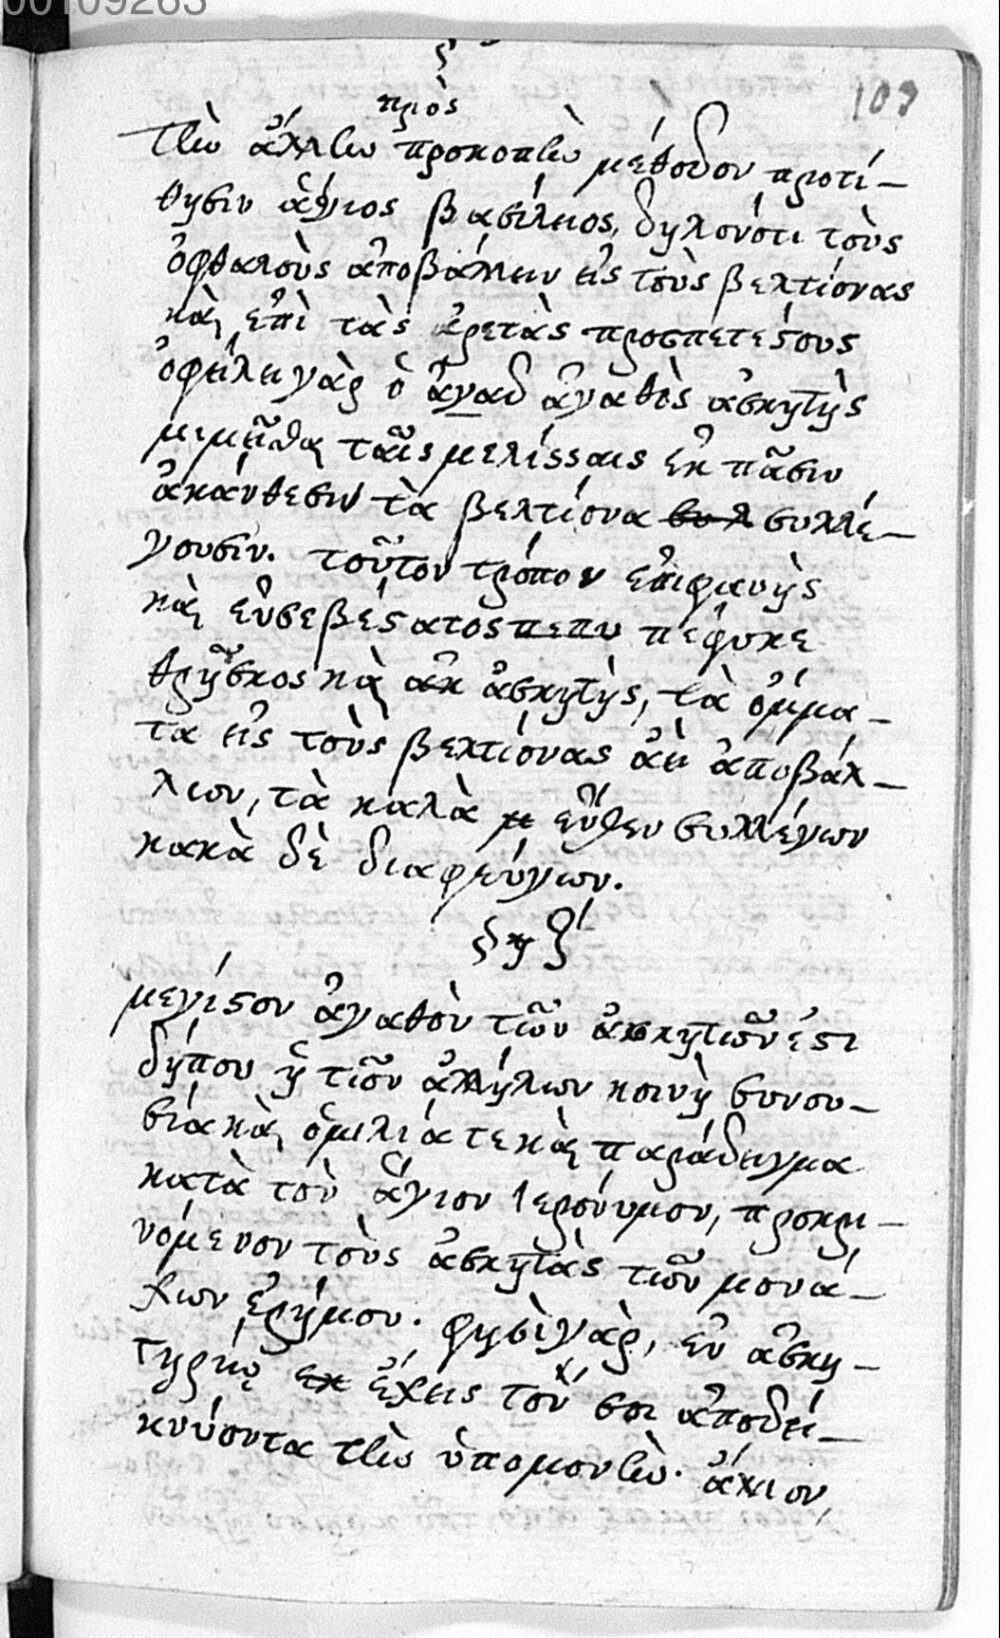 00109263
109
ξ
πρὸς
τὴν ἄλλην προκοπὴν μέθοδον προτί-
θησιν ἅγιος βασίλειος, δηλονότι τοὺς
ὀφθαλοὺς ἀποβάλλειν εἰς τοὺς βελτίονας
καὶ ἐπὶ τὰς ἀρετὰς προσπετέςους
ὀφείλει γὰρ ὁ ἀγαδ ἀγαθὸς ἀσκητὴς
μιμεῖσθαι ταῖς μελίσσαις ἐκ πᾶσιν
ἀκάνθεσιν τὰ βελτίονα συλλέ-
γουσιν. τοῦτον τρόπον ἐπιφανὴς
καὶ εὐσεβέςατος πεπυ πέφυκε
θρῆσκος καὶ ἀκ ἀσκητὴς, τὰ ὄμμα-
τα εἰς τοὺς βελτίονας ἀεὶ ἀποβάλ-
λων, τὰ καλὰ μ εὖθεν συλλέγων
κακὰ δὲ διαφεύγων.
μέγιςον ἀγαθὸν τῶν ἀσκητῶν ἐςι
δήπου ἡ τῶν ἀλλήλων κοινὴ συνου-
σία καὶ ὁμιλία τε καὶ παράδειγμα
κατὰ τὸν ἅγιον Ἱερόνυμον, προκρι-
νόμενον τοὺς ἀσκητὰς τῶν μονά-
χων ἐρήμου. φησὶ γὰρ, ἐν ἀσκη-
τηρίῳ ἐχ ἔχεις τοῦ σοι ἀποδει-
κνύοντα τὴν ὑπομονὴν.